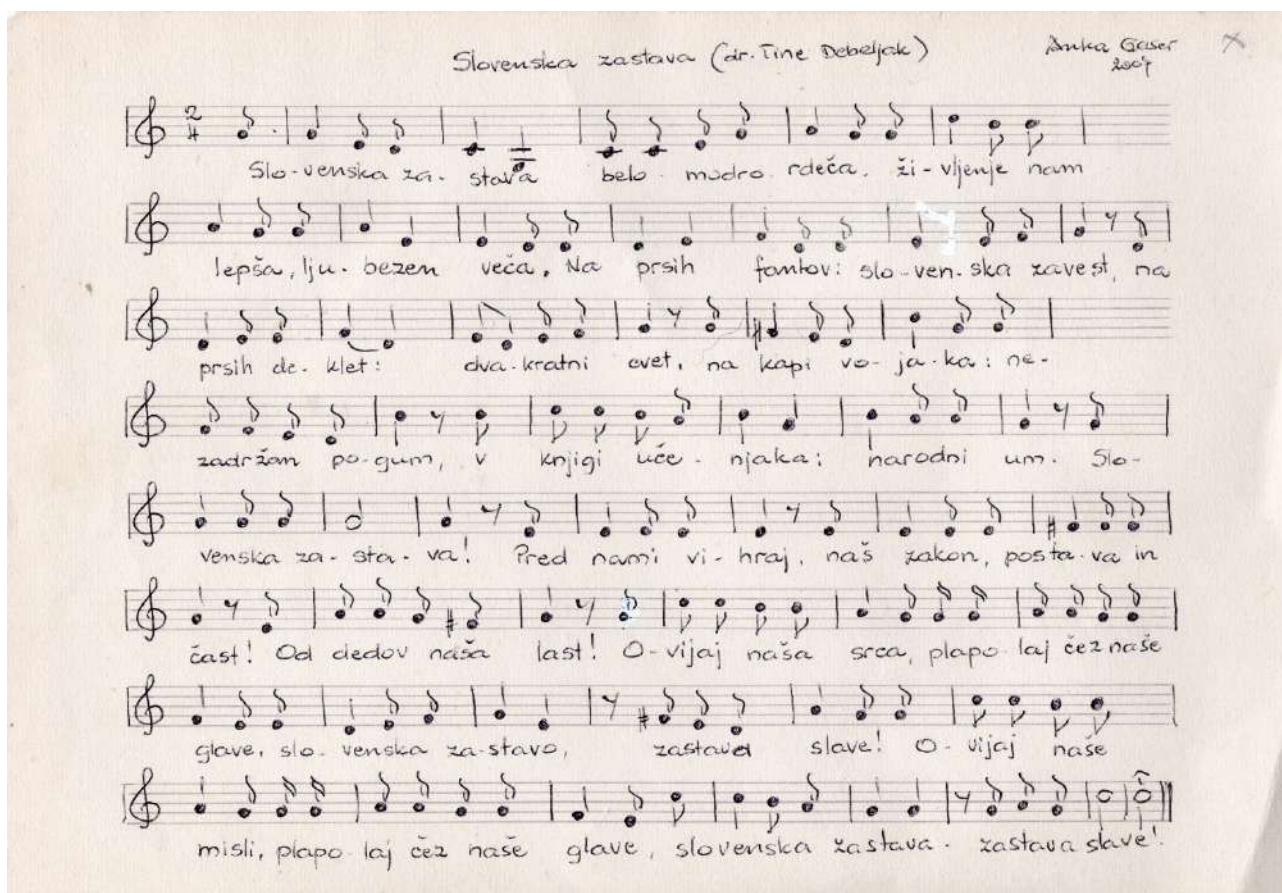 Slovenska zastava (dr. Tine Debeljak)
Anka Gaser
2007
2
4
Slo-venska za-stava belo-modro rdeča, ži-vljenje nam
lepša, lju-bezen veča. Na prsih fantov: slo-ven-ska zavest, na
prsih de-klet: dva-kratni cvet, na kapi vo-ja-ka: ne-
zadržan po-gum, v knjigi uče-njaka: narodni um. Slo-
venska za-sta-va! Pred nami vi-hraj, naš zakon, posta-va in
čast! Od dedov naša last! O-vijaj naša srca, plapo-laj čez naše
glave, slo-venska za-stavo, zastava slave! O-vijaj naše
misli, plapo-laj čez naše glave, slovenska zastava. zastava slave!